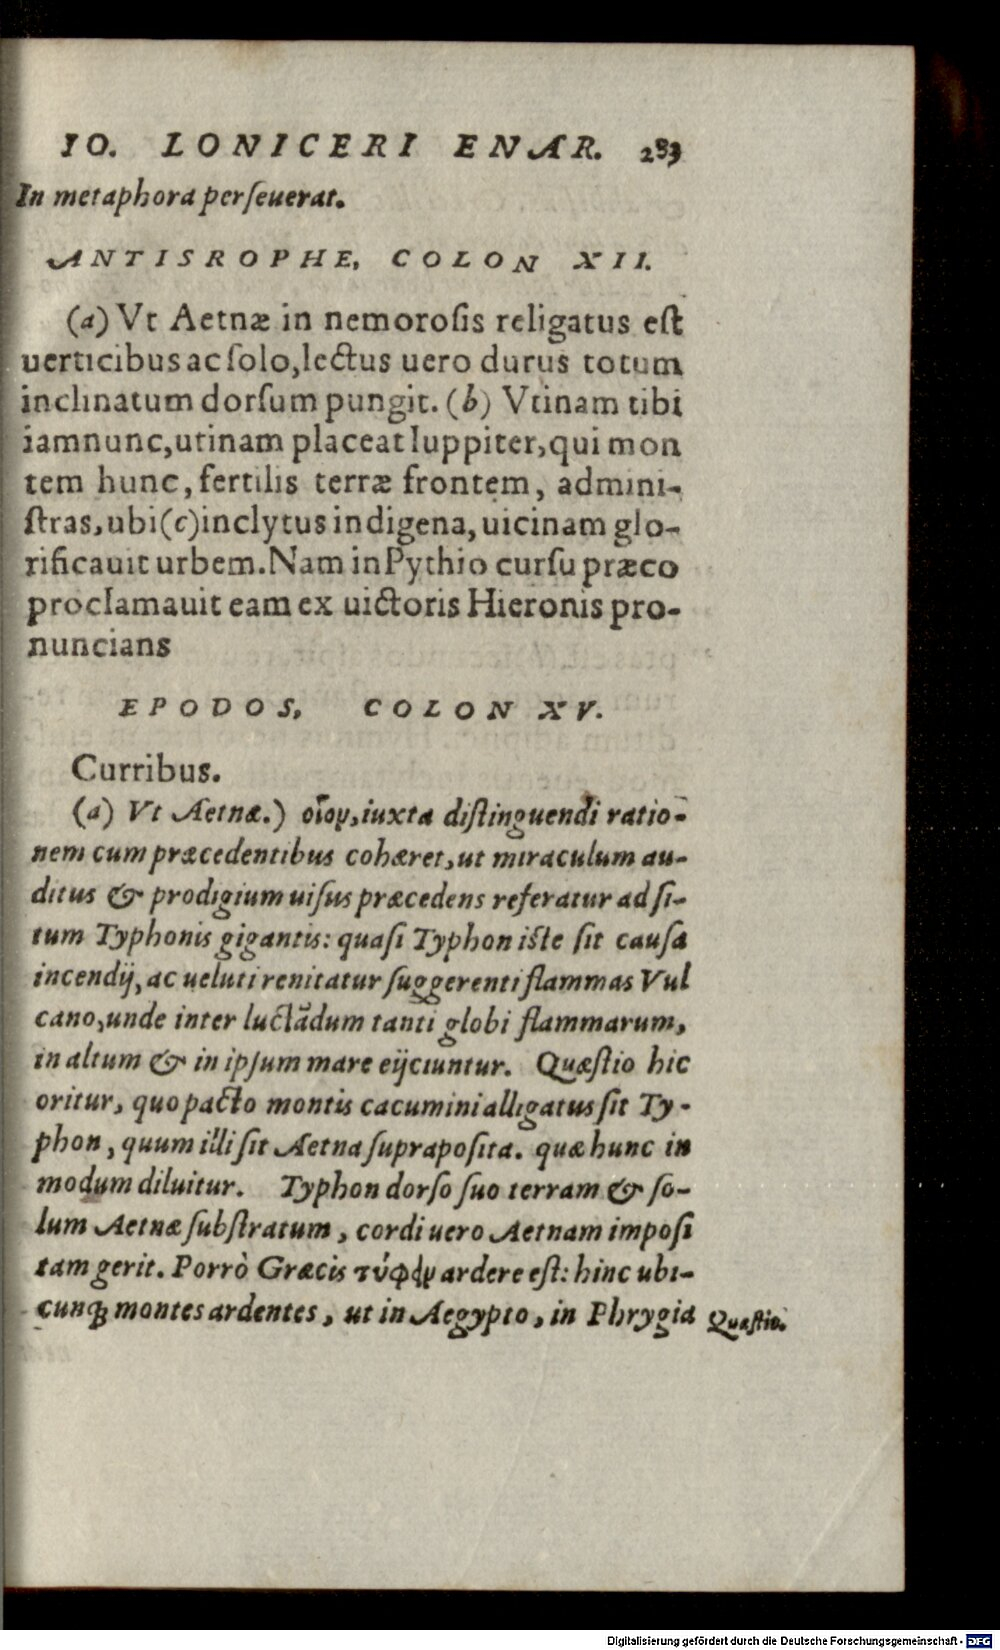 IO. LONICERI ENAR. 283
In metaphora perſeuerat.
ANTISROPHE, COLON XII.
(a) Vt Aetnæ in nemoroſis religatus eſt
uerticibus ac ſolo, lectus uero durus totum
inclinatum dorſum pungit. (b) Vtinam tibi
iamnunc, utinam placeat Iuppiter, qui mon
tem hunc, fertilis terræ frontem, admini-
ſtras, ubi (c) inclytus indigena, uicinam glo-
rificauit urbem. Nam in Pythio curſu præco
proclamauit eam ex uictoris Hieronis pro-
nuncians
EPODOS, COLON XV.
Curribus.
(a) Vt Aetnæ.) οἷον, iuxta diſtinguendi ratio-
nem cum præcedentibus cohæret, ut miraculum au-
ditus & prodigium uiſus præcedens referatur ad ſi-
tum Typhonis gigantis: quaſi Typhon iſte ſit cauſa
incendij, ac ueluti renitatur ſuggerenti flammas Vul
cano, unde inter luctādum tanti globi flammarum,
in altum & in ipſum mare eijciuntur. Quæſtio hic
oritur, quo pacto montis cacumini alligatus ſit Ty-
phon, quum illi ſit Aetna ſuprapoſita. quæ hunc in
modum diluitur. Typhon dorſo ſuo terram & ſo-
lum Aetnæ ſubſtratum, cordi uero Aetnam impoſi
tam gerit. Porrò Græcis τύφειν ardere eſt: hinc ubi-
cunq; montes ardentes, ut in Aegypto, in Phrygia
Quæſtio.
Digitalisierung gefördert durch die Deutsche Forschungsgemeinschaft - DFG